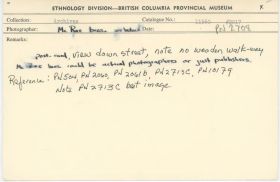 ETHNOLOGY DIVISION—BRITISH COLUMBIA PROVINCIAL MUSEUM
Collection: Archives Catalogue No.:
Photographer: Mc Rae bros. Date: PN 2709
Remarks:
post-card, view down street, note no wooden walk-way
Mc Rae bros. could be actual photographers or just publishers.
Reference: PN504, PN2060, PN2061B, PN2713C, PN10179
Note PN2713C best image